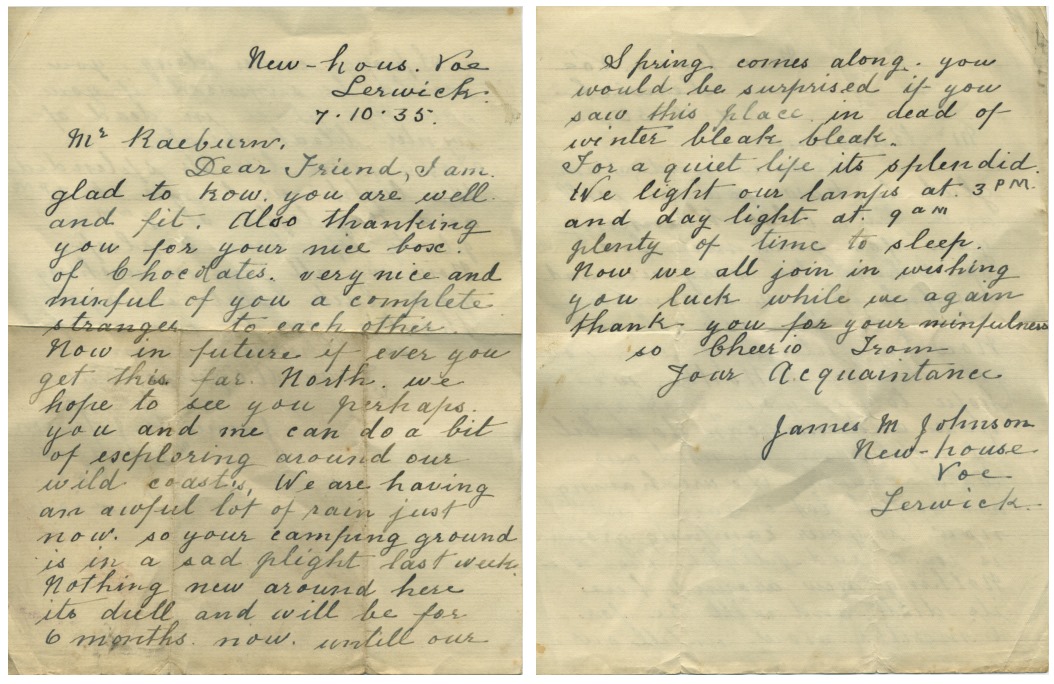 New-hous. Voe
Lerwick.
7.10.35.
Mr Raeburn.
Dear Friend, I am.
glad to kow. you are well.
and fit. Also thanking
you for your nice box.
of Chocolates. very nice and
minful of you a complete
stranger to each other.
Now in future if ever you
get this far. North. we
hope to see you perhaps.
you and me can do a bit
of exploring around our
wild coasts, We are having
an awful lot of rain just
now. so your camping ground
is in a sad plight last week.
Nothing new around here
its dull and will be for
6 months. now. untill our
Spring comes along. you
would be surprised if you
saw this place in dead of
winter bleak bleak.
For a quiet life its splendid.
We light our lamps at. 3 PM.
and day light at. 9 am
plenty of time to sleep.
Now we all join in wishing
you luck while we again
thank you for your minfulness
so Cheerio From
Your Acquaintance
James M Johnson
New-house
Voe
Lerwick.